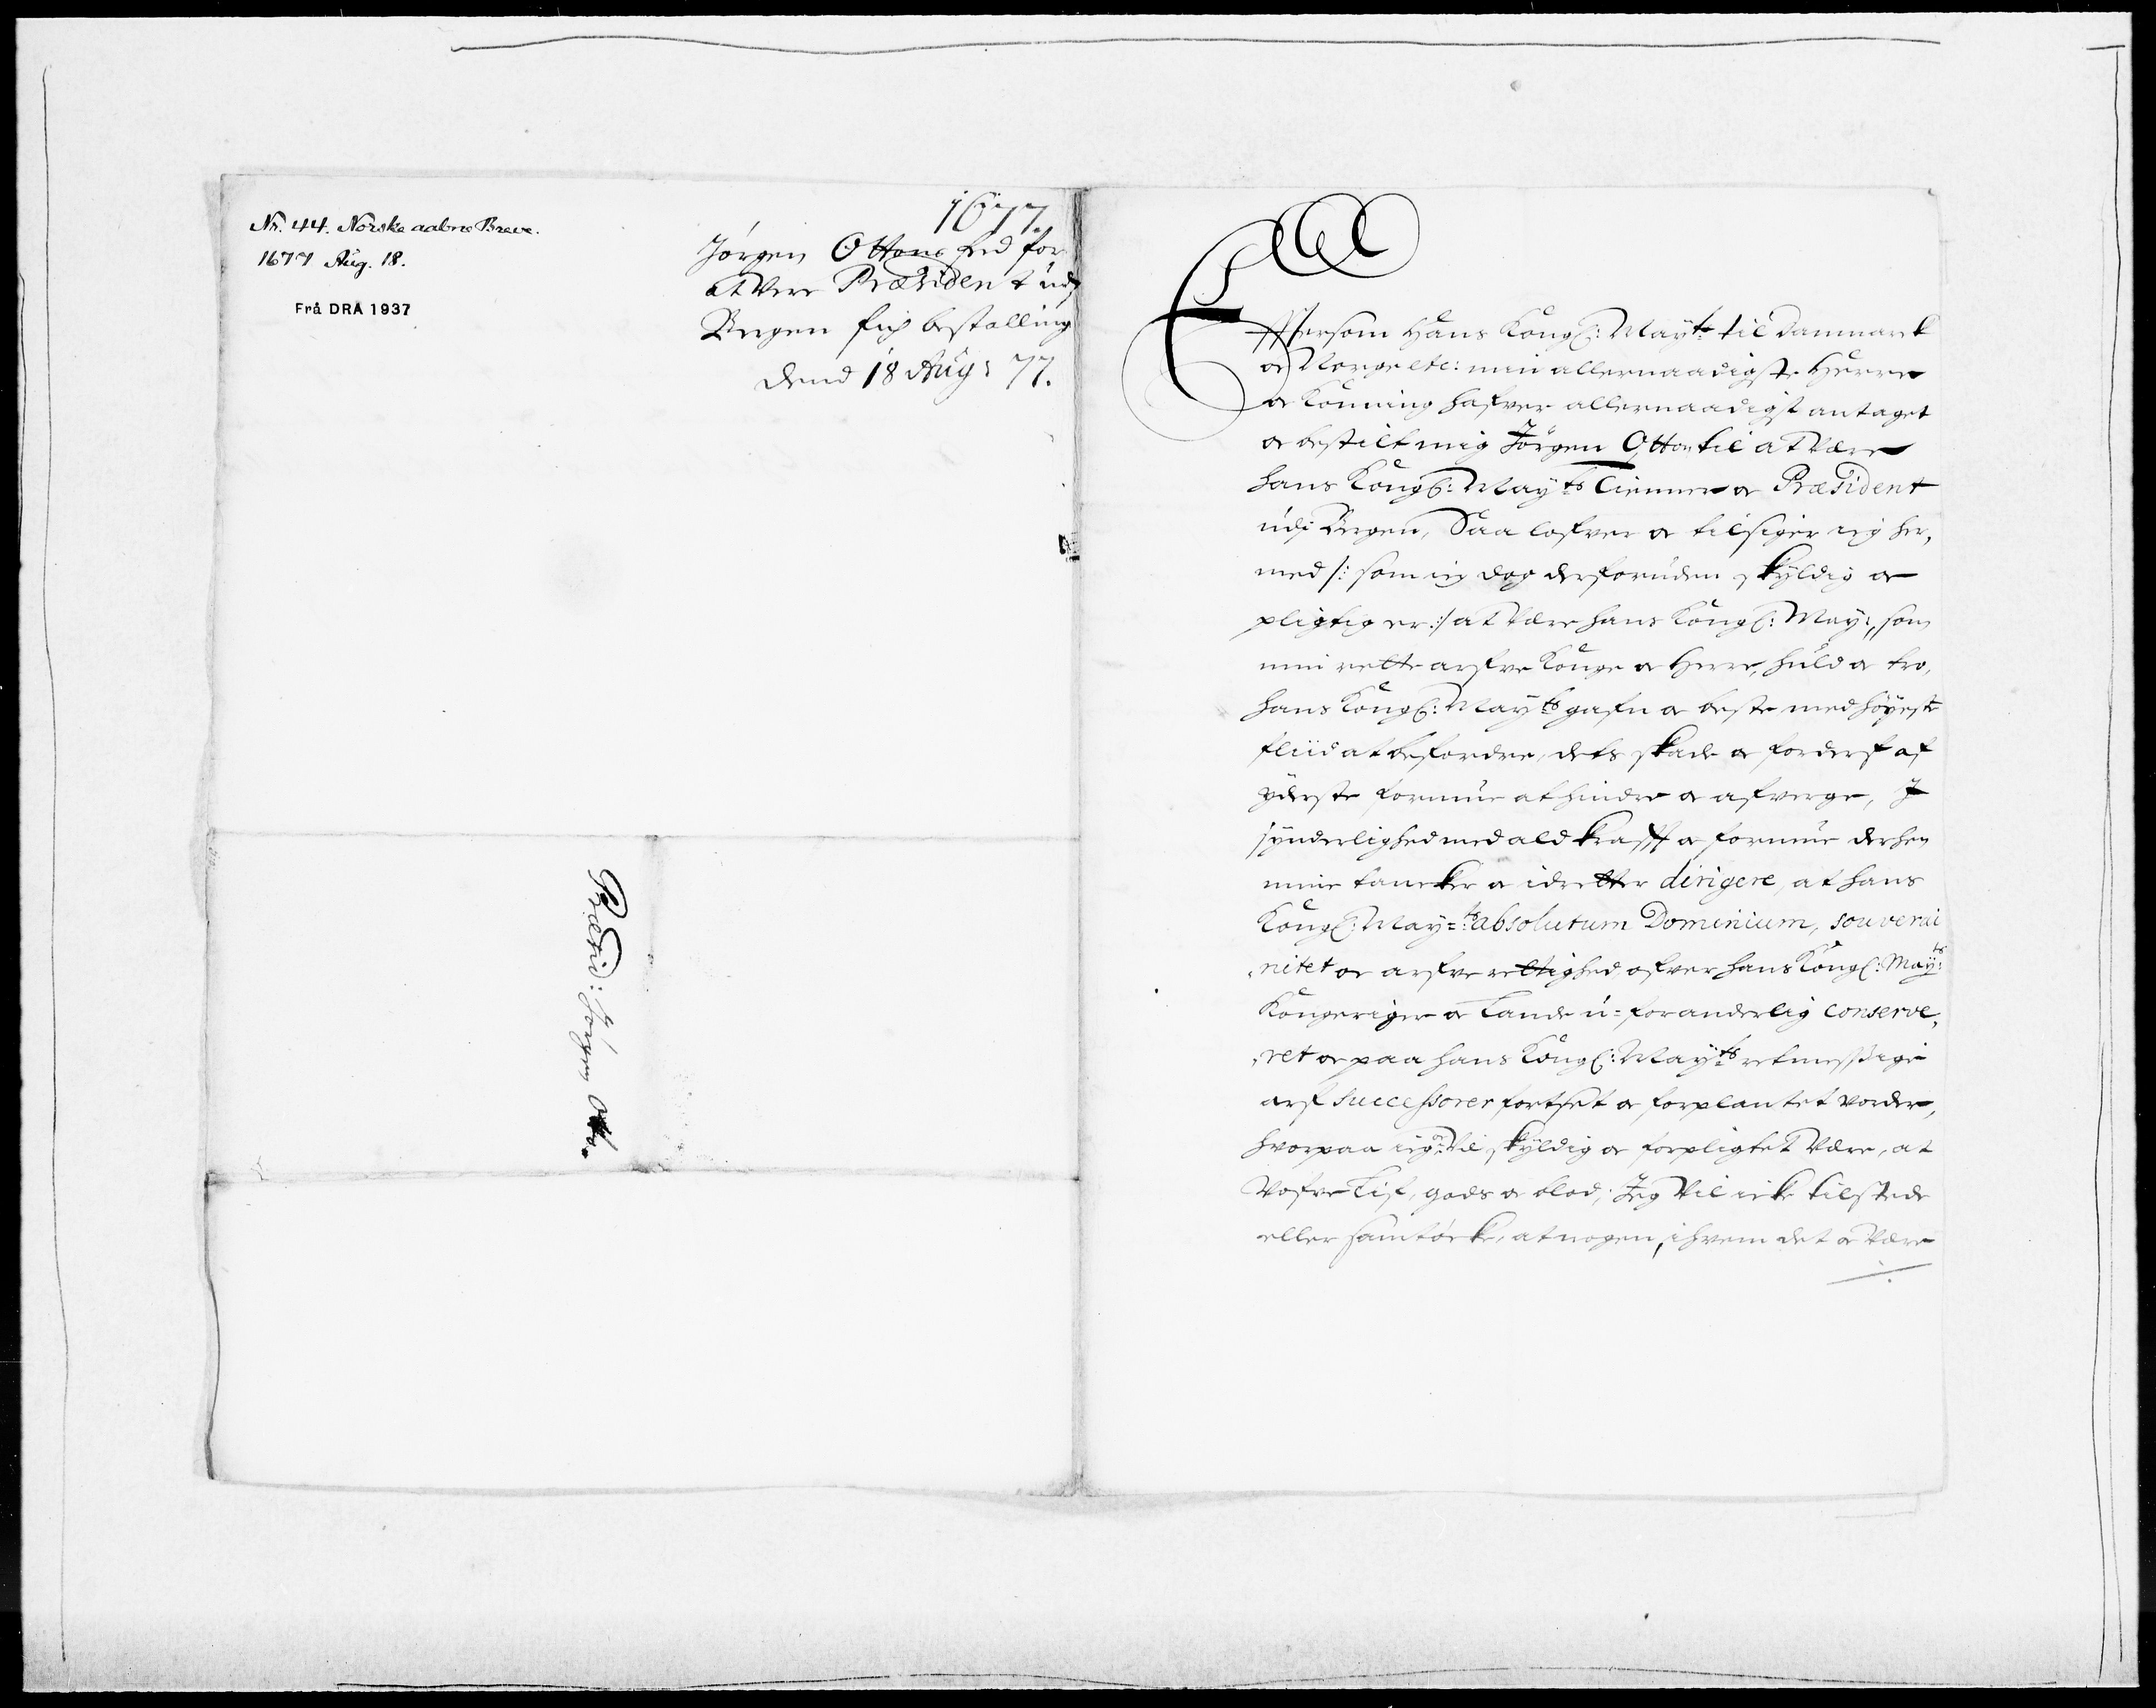 Nr. 44. Norske aabne Breve.
1677 Aug. 18.
Frå DRA 1937
1677.
Jørgen Ottens Eed for
at Vere Præsident udj
Bergen fich bestalling
dend 18 Aug: 77.
Præsid: Jörgen Otto.
Effttersom Hans Kongl: Mayts til Danmarck
oc Norge etc: min allernaadigste Herre
oc Konning hafver allernaadigst antaget
oc bestilt mig Jörgen Otto til at Være
hans Kongl: Mayts tienner oc Præsident
udj Bergen, Saa lofver oc tilsiger ieg her,
med /: som ieg dog desforuden skyldig oc
pligtig er :/ at være hans Kongl: May:, som
min rette arfve Konge oc Herre, huld oc tro,
hans Kongl: Mayts gafn oc beste med höyeste
fliid at befordre, dets skade oc forderf af
yderste formue at hindre oc afverge, J
synderlighed med ald krafft oc formue derhen
mine tancker oc idretter dirigere, at hans
Kongl: May=ts absolutum Dominium, souverai
„nitet oc arfve rettighed ofver hans Kongl: Mayts:
Kongeriger oc Lande u=foranderlig conserve,
„ret oc paa hans Kongl: Mayts retmessige
arf Successorer fortset oc forplantet vorder,
hvorpaa ieg oc vil skyldig oc forpligtet Være, at
Vofve Lif, gods oc blod; Jeg Vil icke tilstede
eller samtöcke, at nogen, ihvem det oc Være